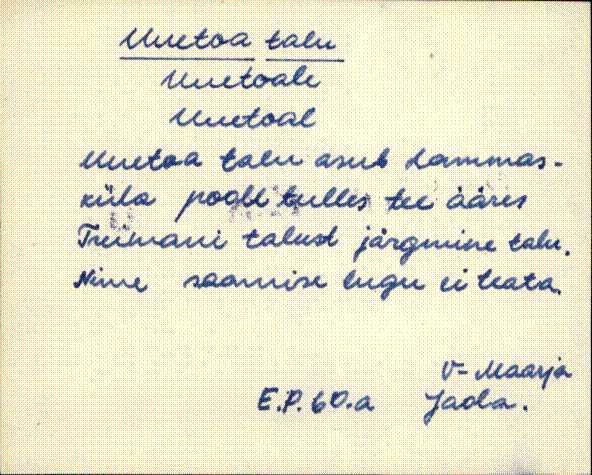 Uuetoa talu
Uuetoale
Uuetoal
Uuetoa talu asub Lammas-
küla poolt tulles tee ääres
Treimani talust järgmine talu.
Nime saamise lugu ei teata.
V-Maarja
E.P. 60.a Jaola.